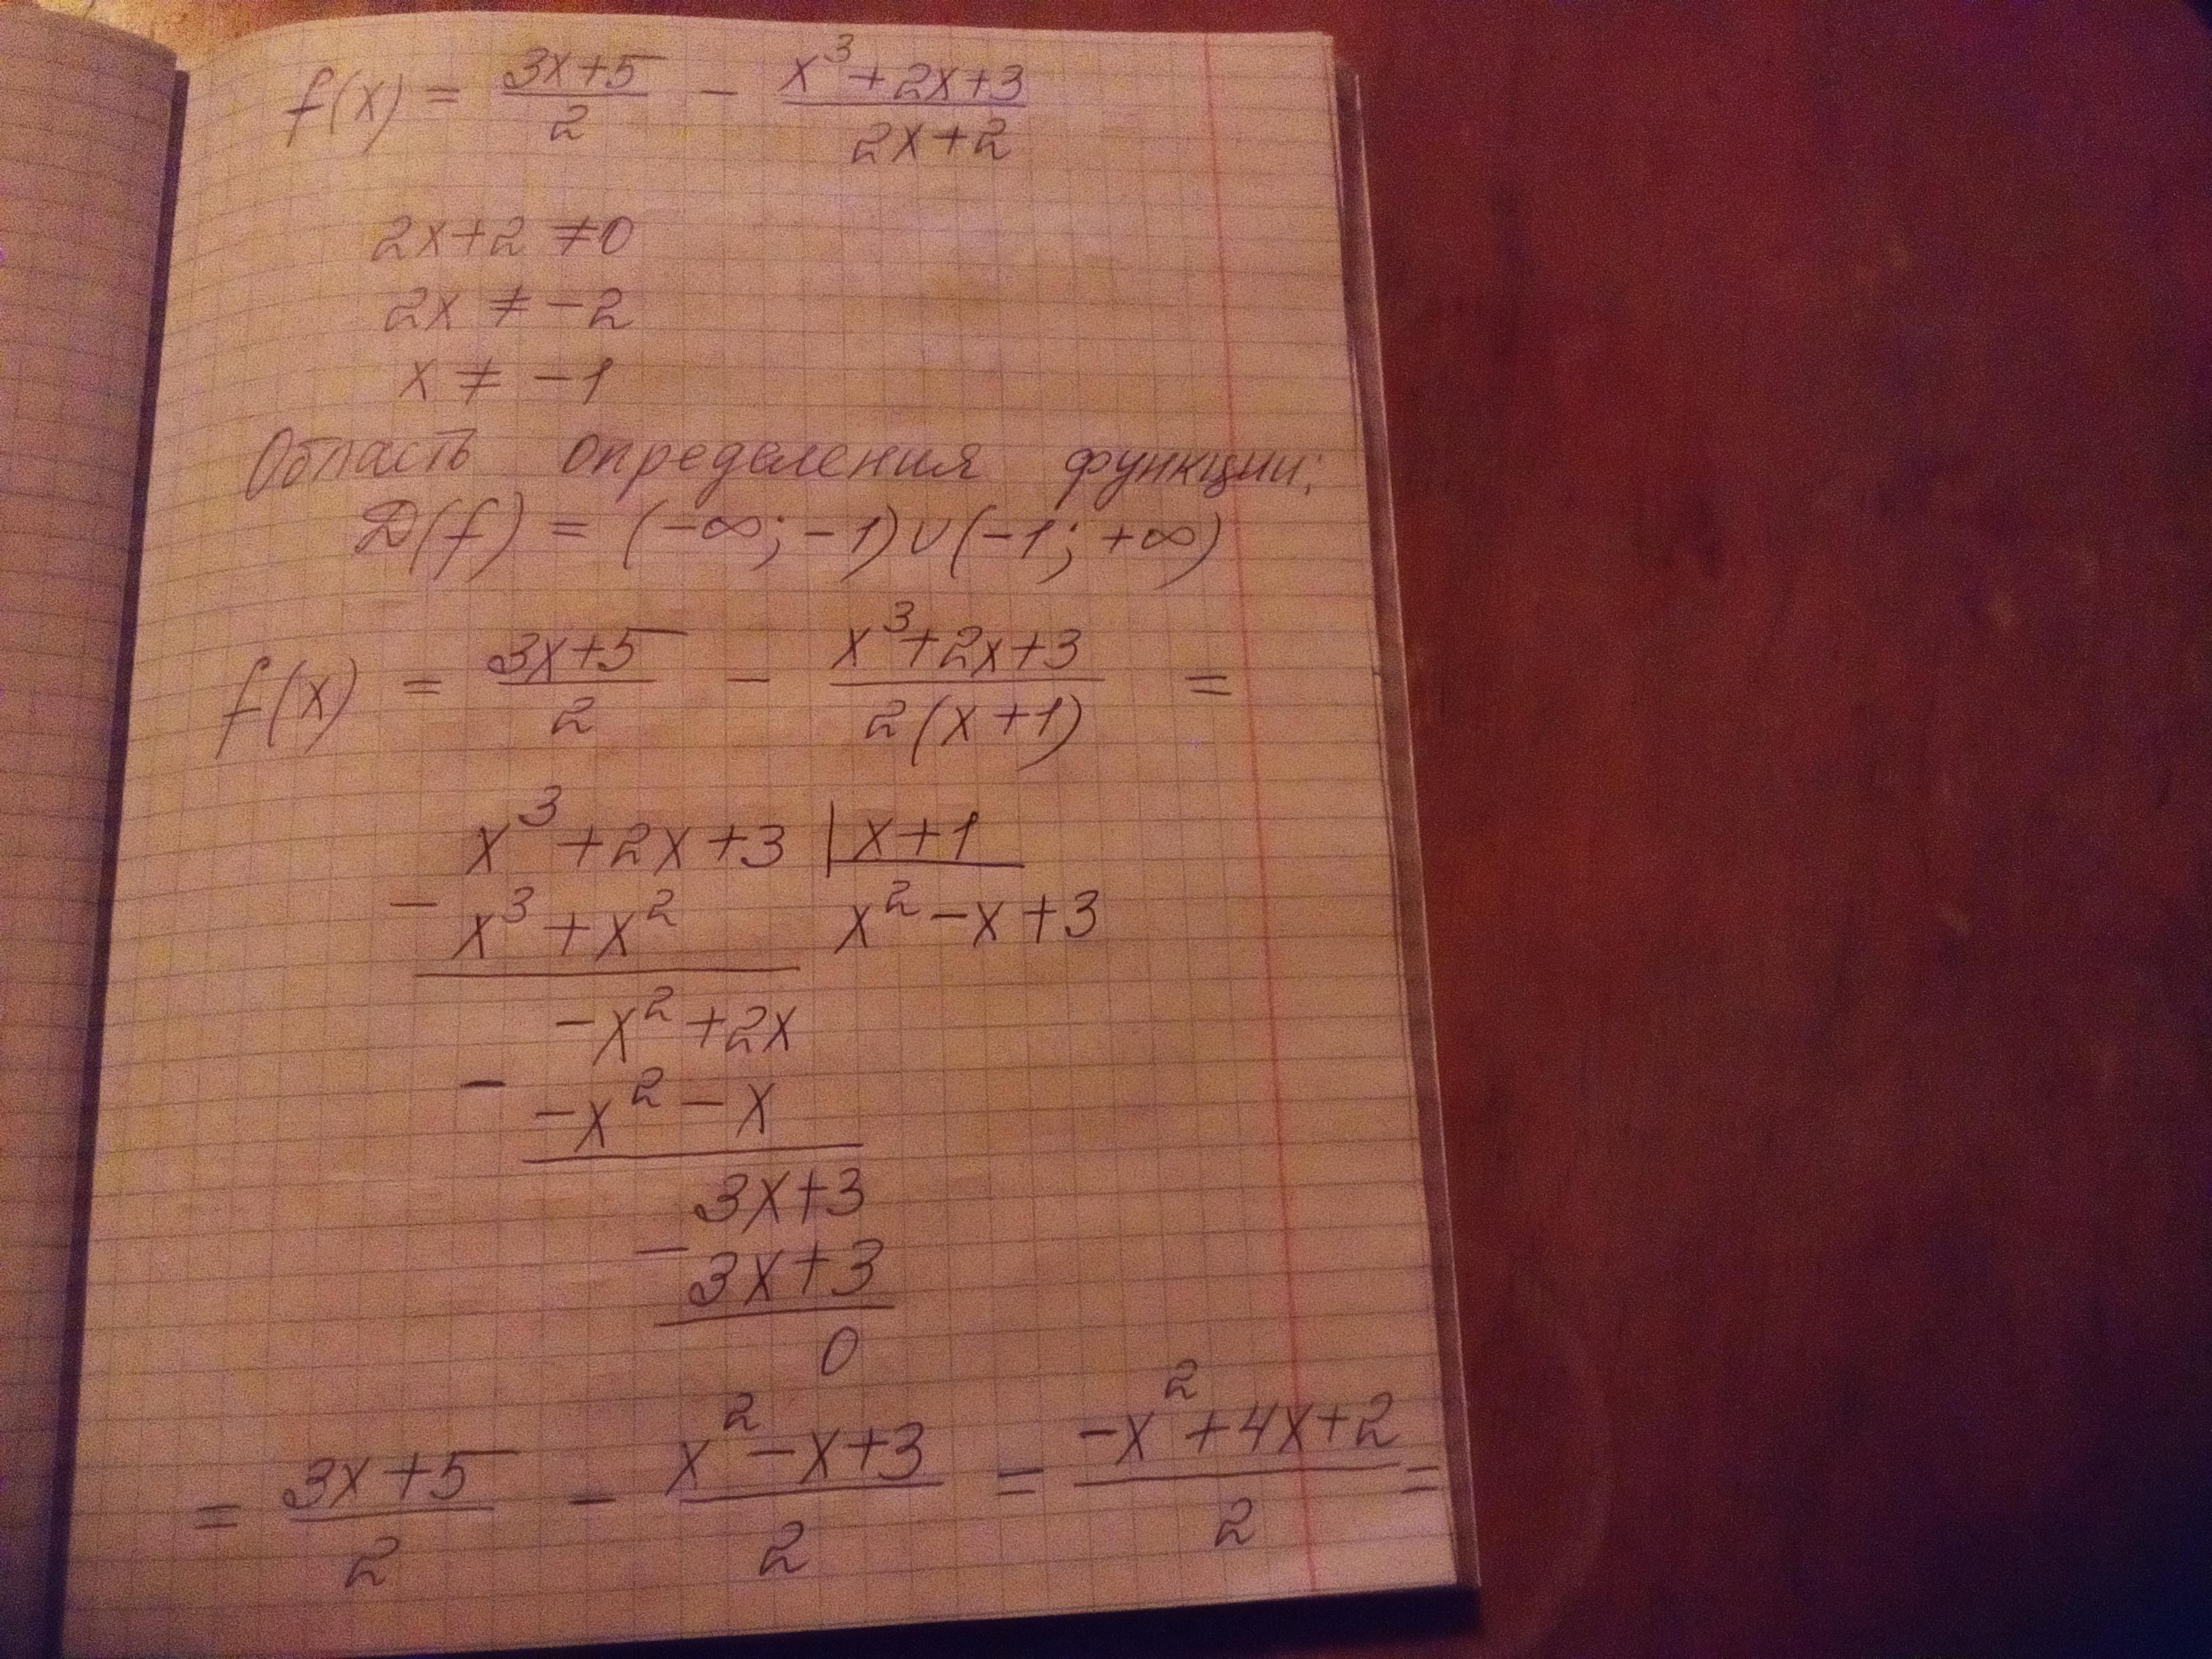 f(x) = (3x+5)/2 − (x³+2x+3)/(2x+2)
2x+2 ≠ 0
2x ≠ −2
x ≠ −1
Область определения функции:
D(f) = (−∞; −1) ∪ (−1; +∞)
f(x) = (3x+5)/2 − (x³+2x+3)/(2(x+1)) =
x³+2x+3 | x+1
− x³+x² x²−x+3
−x²+2x
− −x²−x
3x+3
− 3x+3
0
= (3x+5)/2 − (x²−x+3)/2 = (−x²+4x+2)/2 =